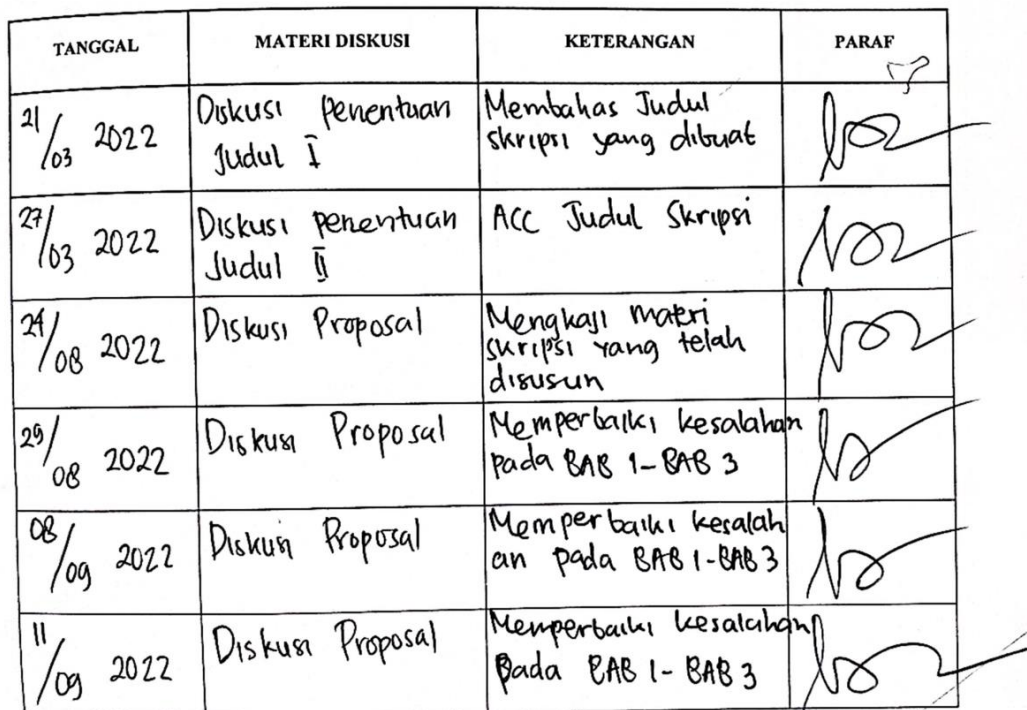 TANGGAL MATERI DISKUSI KETERANGAN PARAF
21/03 2022 Diskusi Penentuan Membahas Judul
Judul I skripsi yang dibuat
27/03 2022 Diskusi penentuan ACC Judul Skripsi
Judul II
24/08 2022 Diskusi Proposal Mengkaji materi
skripsi yang telah
disusun
29/08 2022 Diskusi Proposal Memperbaiki kesalahan
pada BAB 1-BAB 3
08/09 2022 Diskusi Proposal Memperbaiki kesalah
an pada BAB 1-BAB 3
11/09 2022 Diskusi Proposal Memperbaiki kesalahan
Pada BAB 1-BAB 3